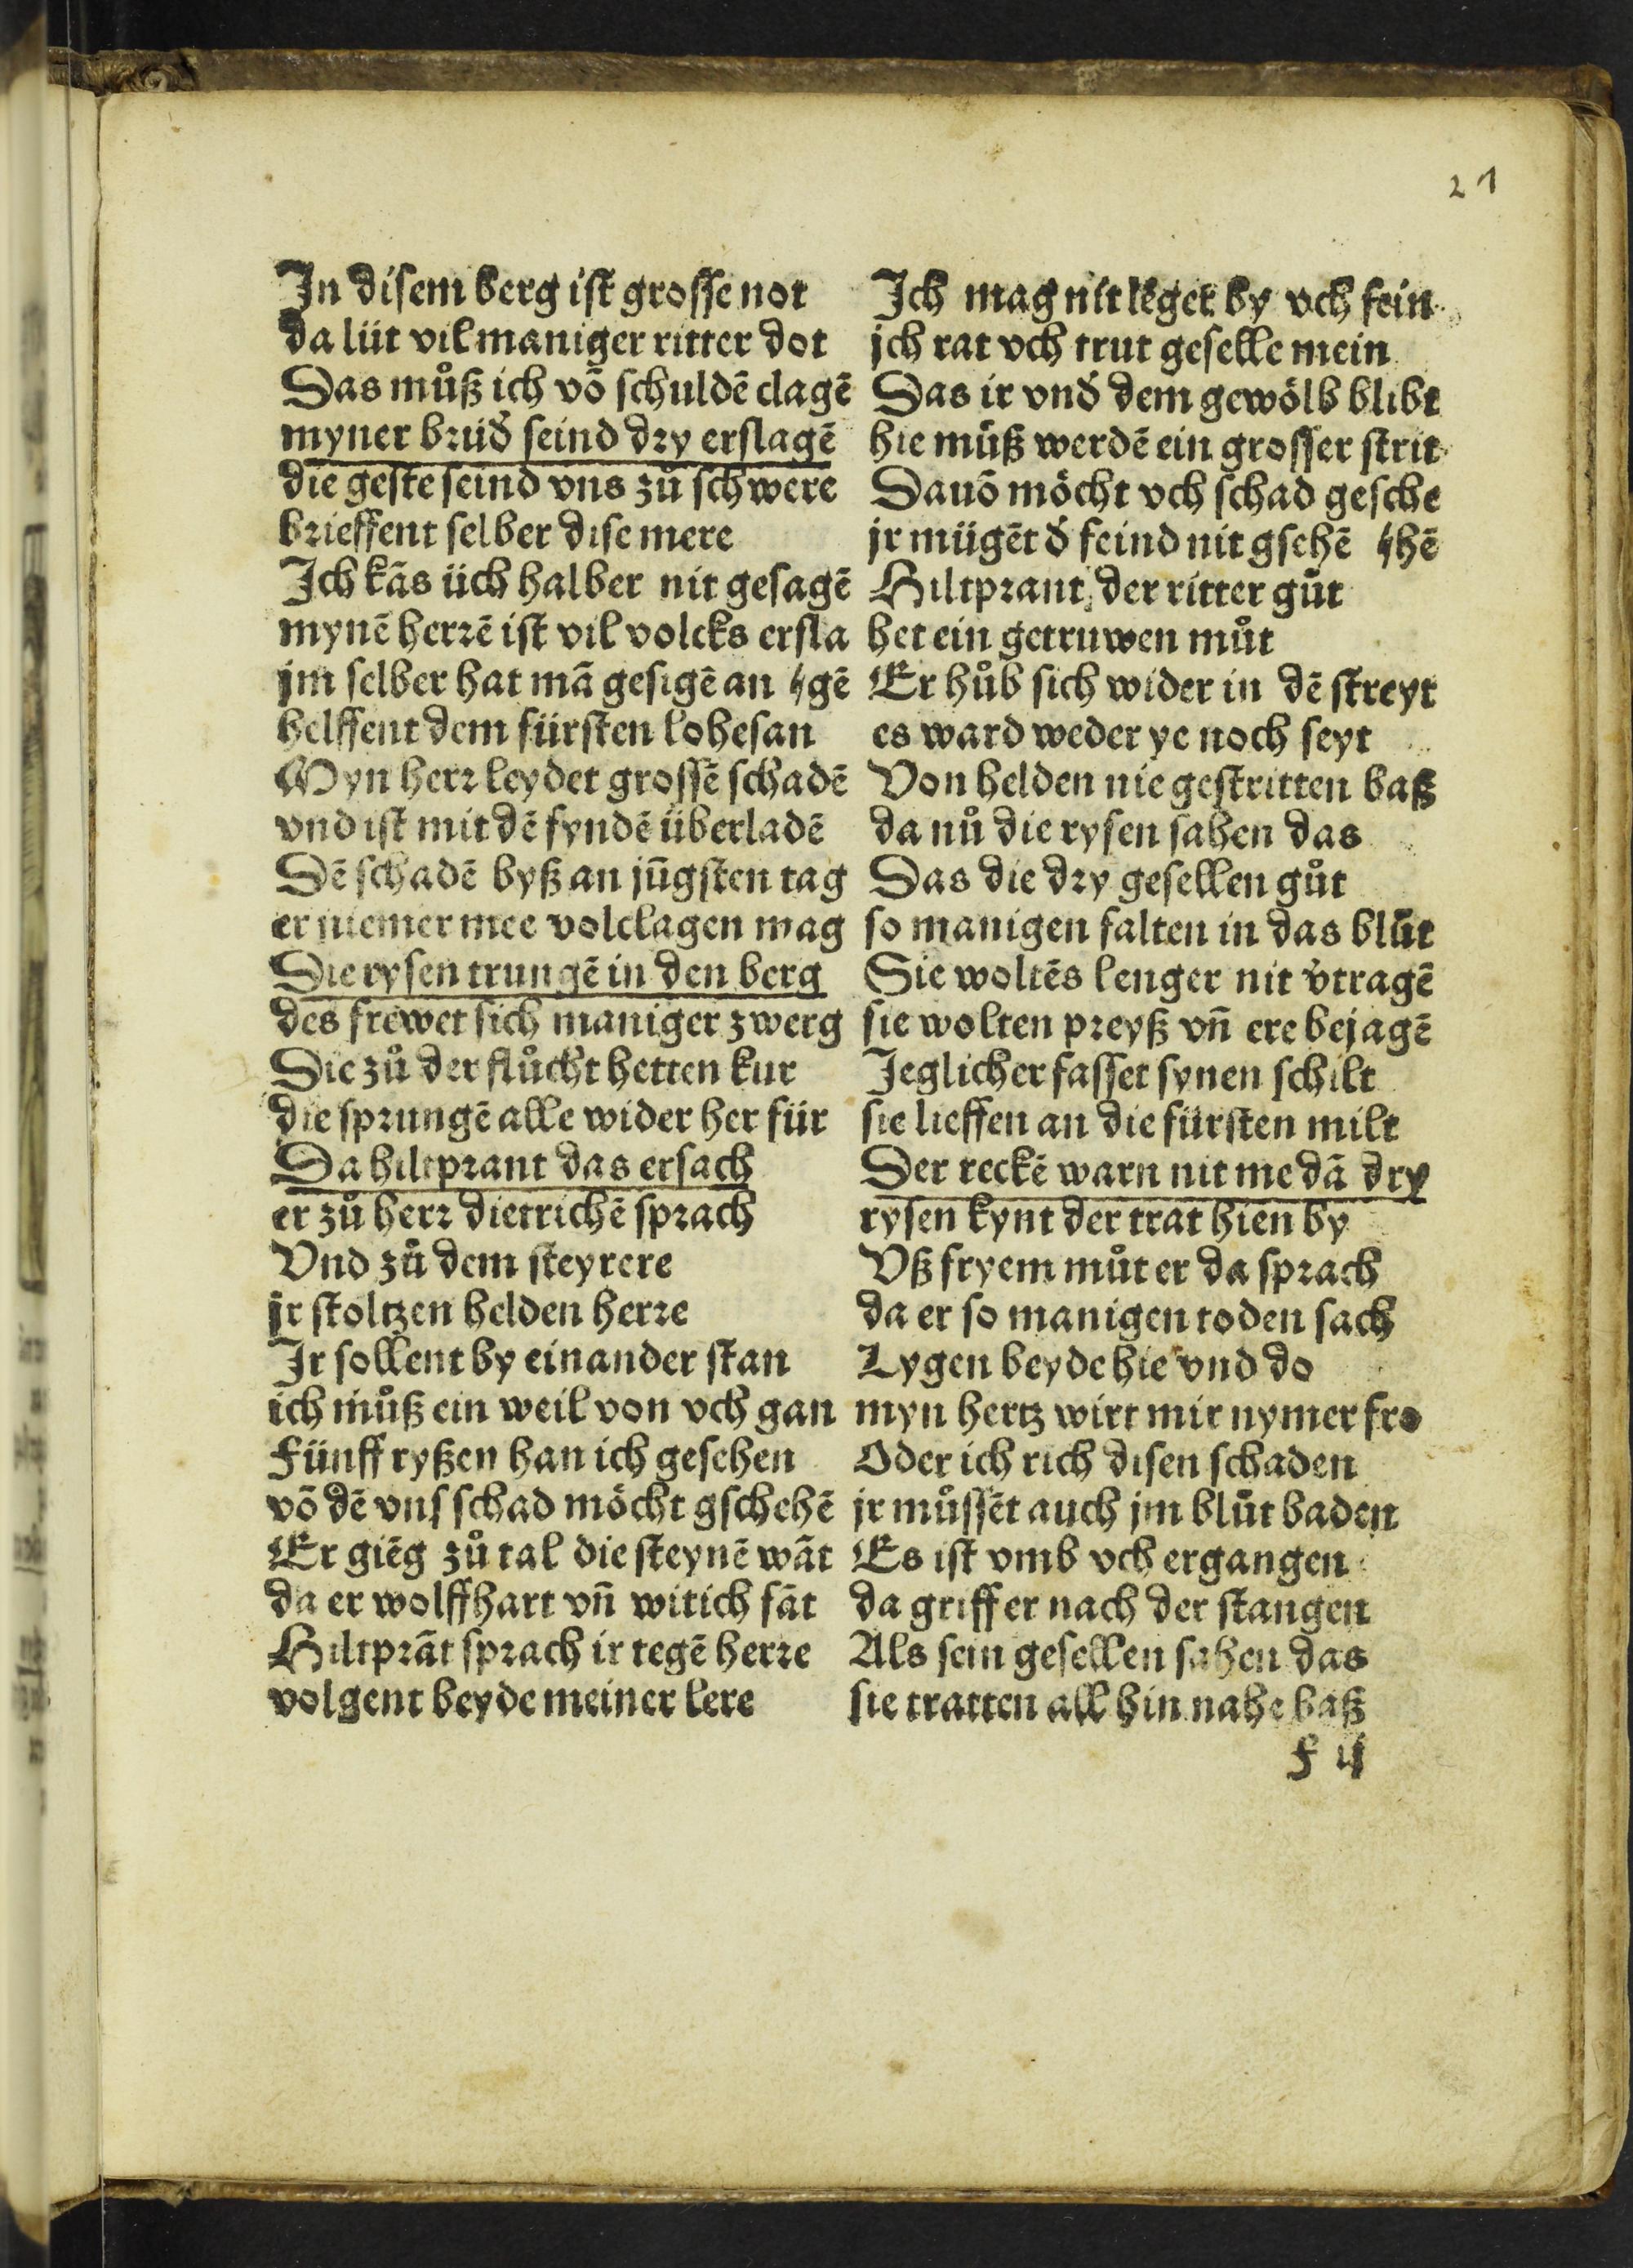 21
In disem berg ist grosse not
da liit vil maniger ritter dot
Das můß ich vō schuldē clagē
myner brüd̕ seind dry erslagē
die geste seind vns zů schwere
brieffent selber dise mere
Ich kās üch halber nit gesagē
mynē herrē ist vil volcks ersla
jm selber hat mā gesigē an ɋgē
helffent dem fürsten lobesan
Myn herr leydet grossē schadē
vnd ist mit dē fyndē überladē
Dē schadē byß an jūgsten tag
er niemer mee volclagen mag
Die rysen trungē in den berg
des frewet sich maniger zwerg
Die zů der flůcht hetten kur
die sprungē alle wider her für
Da hiltprant das ersach
er zů herr dietrichē sprach
Vnd zů dem steyrere
jr stoltzen helden herre
Ir sollent by einander stan
ich můß ein weil von vch gan
Fünff ryßen han ich gesehen
vō dē vns schad möcht gschehē
Er giēg zů tal die steynē wāt
da er wolffhart vn̄ witich fāt
Hiltprāt sprach ir tegē herre
volgent beyde meiner lere
Ich mag nit lēger by vch sein
jch rat vch trut geselle mein
Das ir vnd̕ dem gewölb blibt
hie můß werdē ein grosser strit
Dauō möcht vch schad gesche
jr mügēt d̕ feind nit gsehē ɋhē
Hiltprant der ritter gůt
het ein getruwen můt
Er hůb sich wider in dē streyt
es ward weder ye noch seyt
Von helden nie gestritten baß
da nů die rysen sahen das
Das die dry gesellen gůt
so manigen falten in das blůt
Sie woltēs lenger nit v̕tragē
sie wolten preyß vn̄ ere bejagē
Jeglicher fasset synen schilt
sie lieffen an die fürsten milt
Der reckē warn nit me dā dry
rysen kynt der trat hien by
Vß fryem můt er da sprach
da er so manigen toden sach
Lygen beyde hie vnd do
myn hertz wirt mir nymer fro
Oder ich rich disen schaden
jr můssēt auch jm blůt baden
Es ist vmb vch ergangen
da griff er nach der stangen
Als sein gesellen sahen das
sie tratten all hin nahe baß
F ij